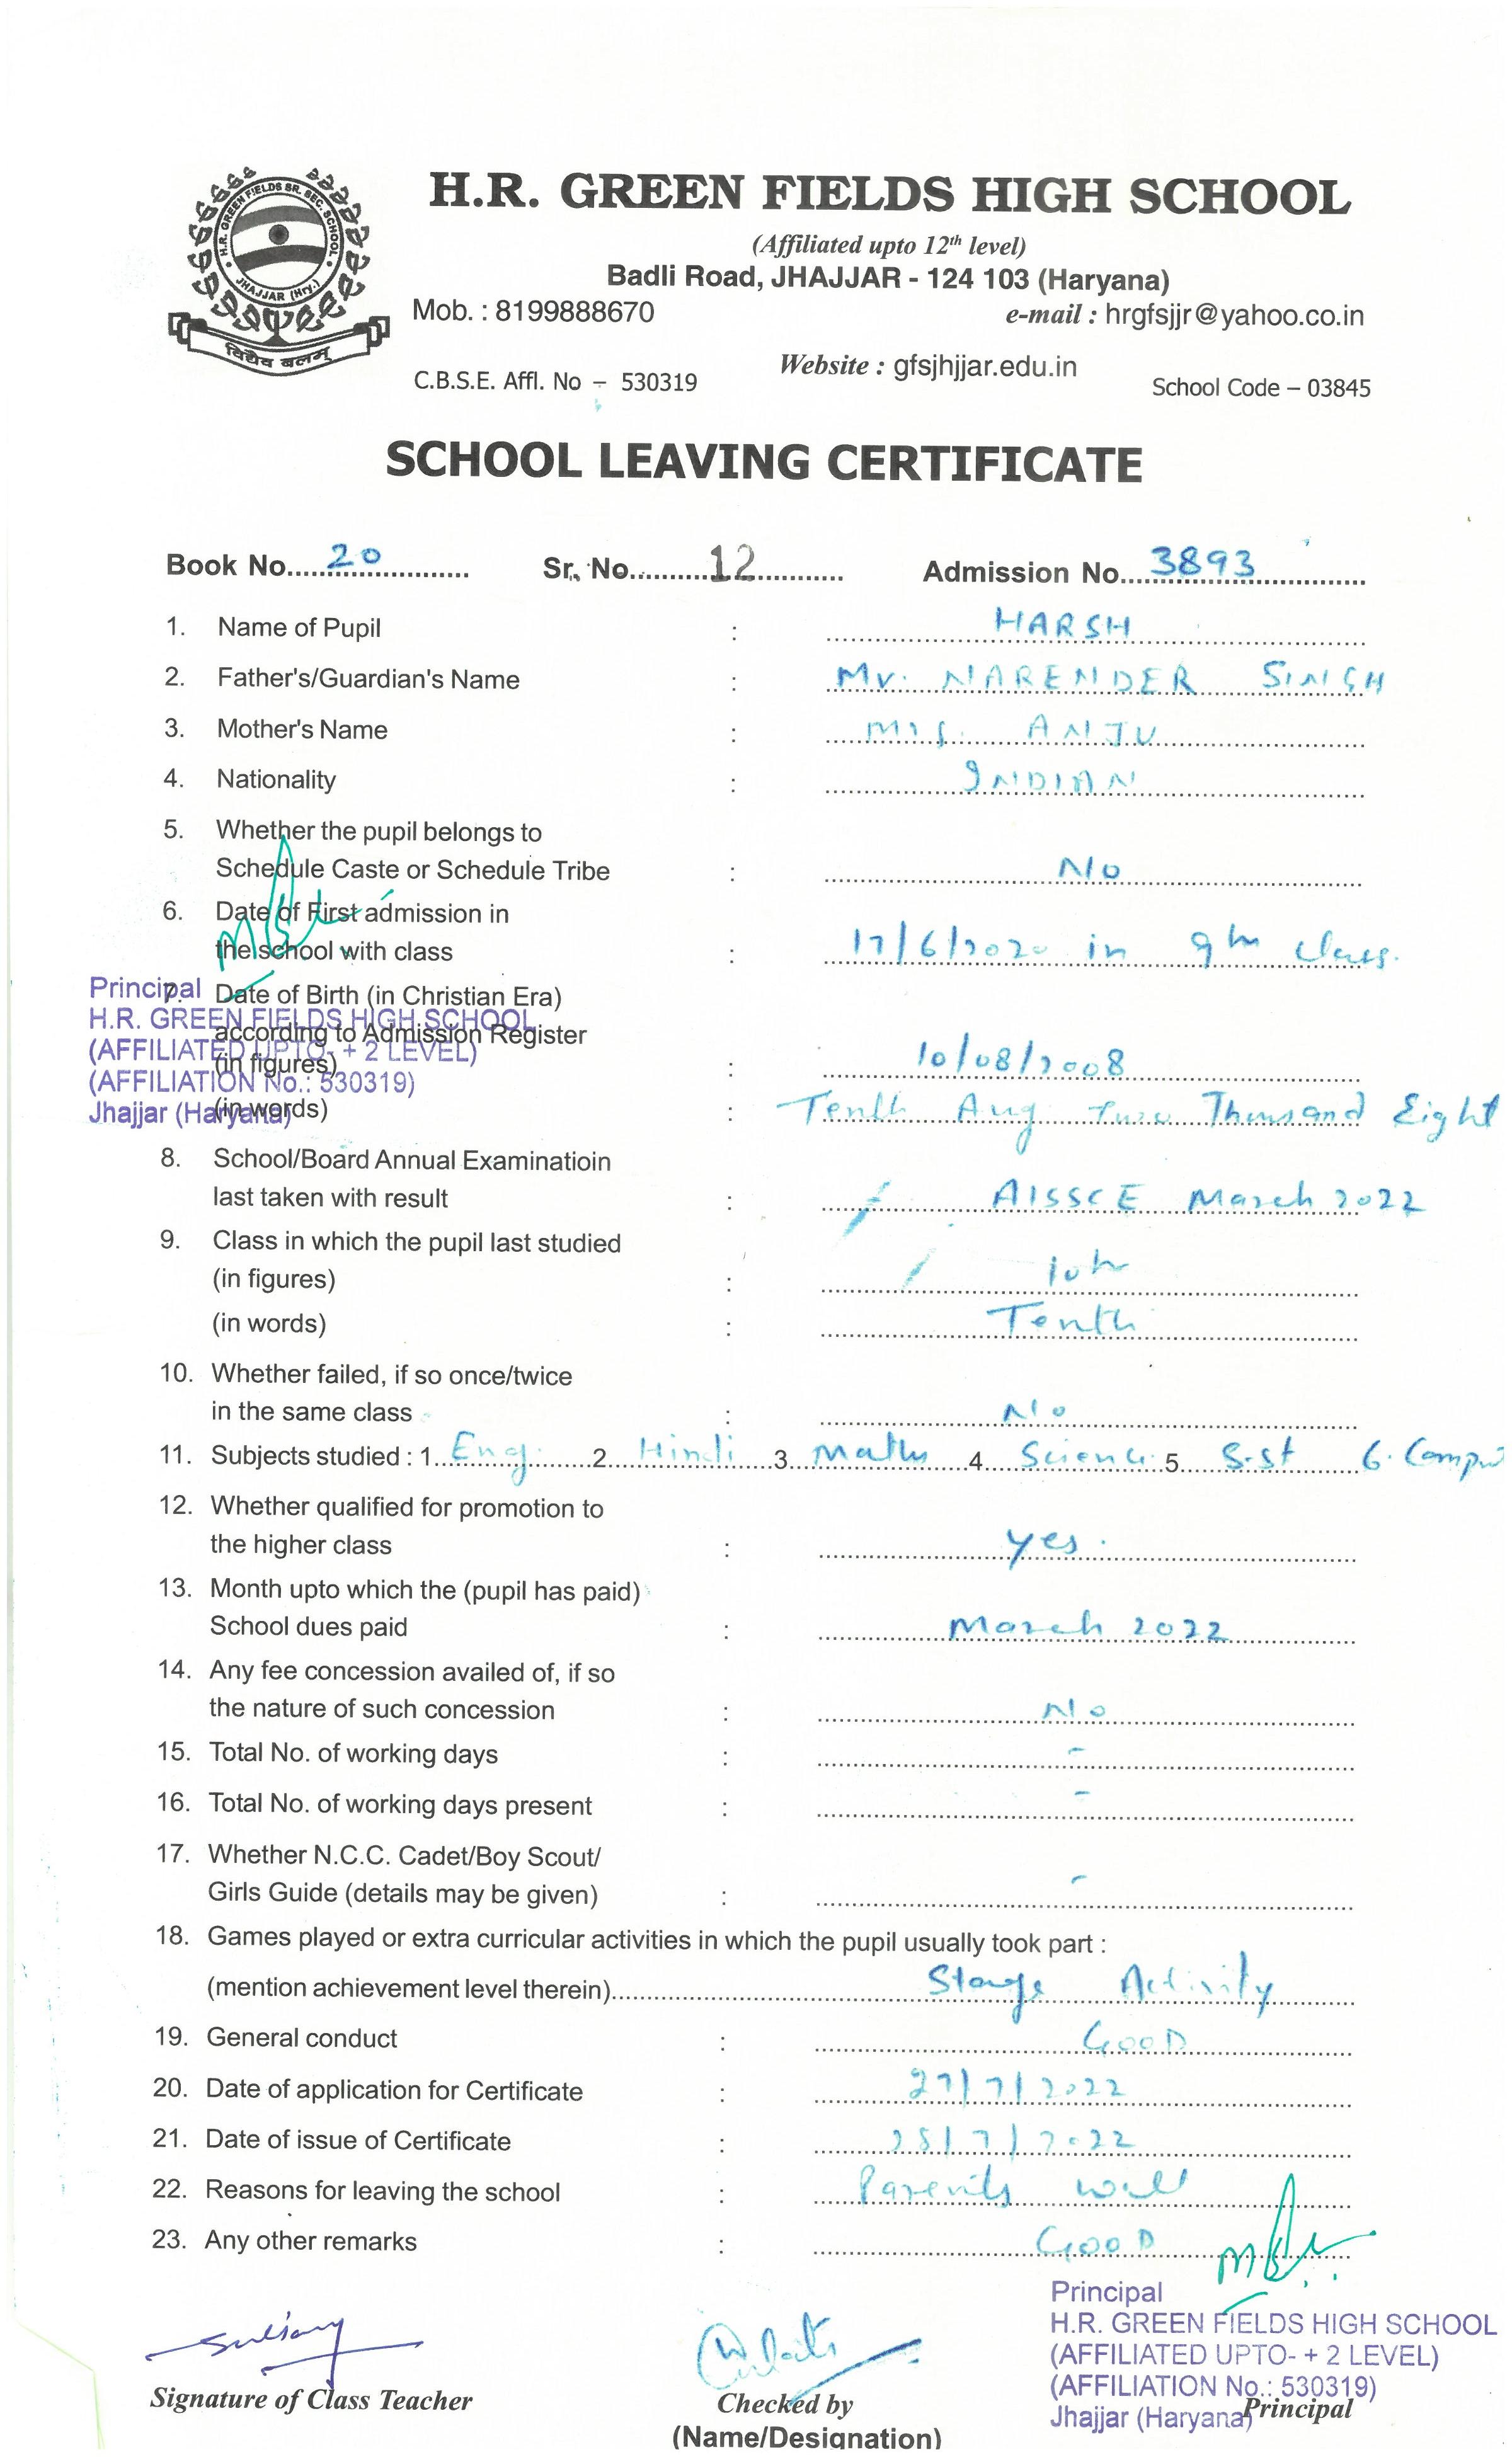 H.R. GREEN FIELDS SR. SEC. SCHOOL
JHAJJAR (Hry.)
विद्यैव बलम्
H.R. GREEN FIELDS HIGH SCHOOL
(Affiliated upto 12th level)
Badli Road, JHAJJAR - 124 103 (Haryana)
Mob. : 8199888670 e-mail : hrgfsjjr@yahoo.co.in
Website : gfsjhjjar.edu.in
C.B.S.E. Affl. No – 530319 School Code – 03845
SCHOOL LEAVING CERTIFICATE
Book No. 20 Sr. No. 12 Admission No. 3893
1. Name of Pupil : HARSH
2. Father's/Guardian's Name : Mr. NARENDER SINGH
3. Mother's Name : Mrs. ANJU
4. Nationality : INDIAN
5. Whether the pupil belongs to
Schedule Caste or Schedule Tribe : No
6. Date of First admission in
the school with class : 17/6/2020 in 9th class.
7. Date of Birth (in Christian Era)
according to Admission Register
(in figures) : 10/08/2008
(in words) : Tenth Aug Two Thousand Eight
Principal
H.R. GREEN FIELDS HIGH SCHOOL
(AFFILIATED UPTO- + 2 LEVEL)
(AFFILIATION No.: 530319)
Jhajjar (Haryana)
8. School/Board Annual Examinatioin
last taken with result : AISSCE March 2022
9. Class in which the pupil last studied
(in figures) : 10th
(in words) : Tenth
10. Whether failed, if so once/twice
in the same class : No
11. Subjects studied : 1. Eng. 2. Hindi 3. Maths 4. Science 5. S.st 6. Comp
12. Whether qualified for promotion to
the higher class : yes.
13. Month upto which the (pupil has paid)
School dues paid : March 2022
14. Any fee concession availed of, if so
the nature of such concession : No
15. Total No. of working days : -
16. Total No. of working days present : -
17. Whether N.C.C. Cadet/Boy Scout/
Girls Guide (details may be given) : -
18. Games played or extra curricular activities in which the pupil usually took part :
(mention achievement level therein) Stage Activity
19. General conduct : GOOD
20. Date of application for Certificate : 27/7/2022
21. Date of issue of Certificate : 28/7/2022
22. Reasons for leaving the school : Parents will
23. Any other remarks : GOOD
Principal
H.R. GREEN FIELDS HIGH SCHOOL
(AFFILIATED UPTO- + 2 LEVEL)
(AFFILIATION No.: 530319)
Jhajjar (Haryana)
Signature of Class Teacher Checked by Principal
(Name/Designation)